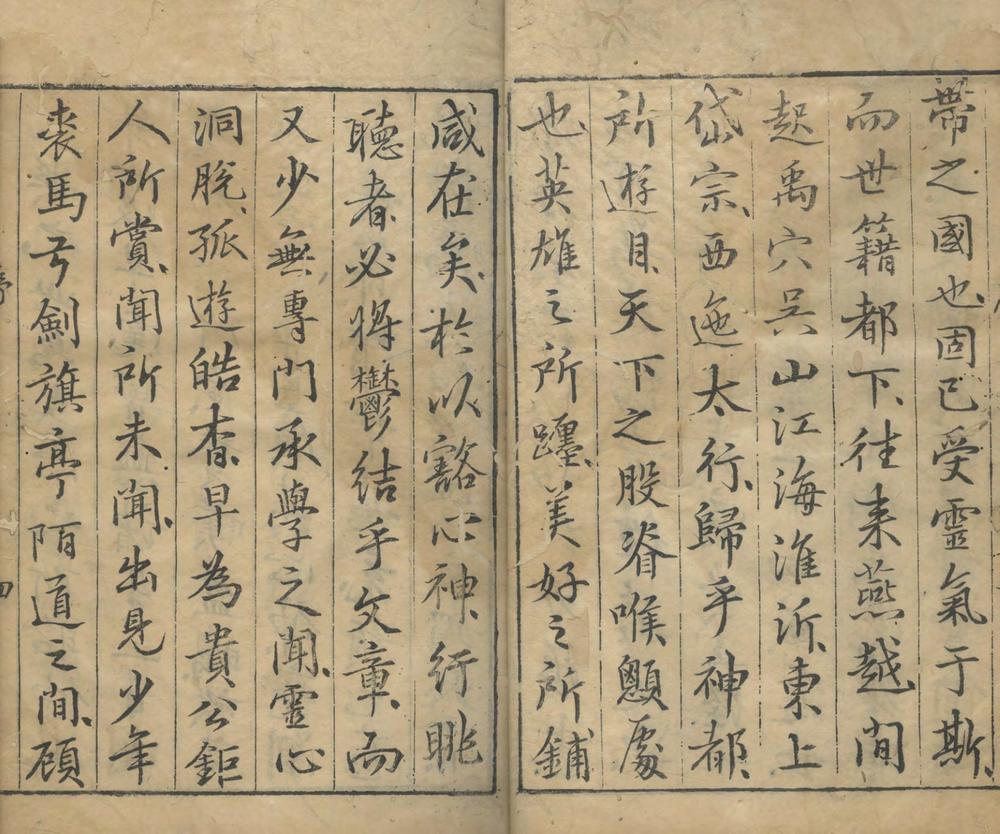 帶之國也固已受靈氣于斯、
而世籍都下、往来燕越間
起禹穴吳山江海淮沂、東上
岱宗、西迤太行、歸乎神都、
所遊目、天下之股脊喉顋處
也英雄之所躔、美好之所鋪
咸在矣、於以豁心神、行眺
聽者、必將鬱結乎文章、而
又少無專門承學之聞、靈心
洞脫、孤遊皓杳、早為貴公鉅
人所賞、聞所未聞、出見少年
裘馬弓劍旗亭陌道之間、顧
四